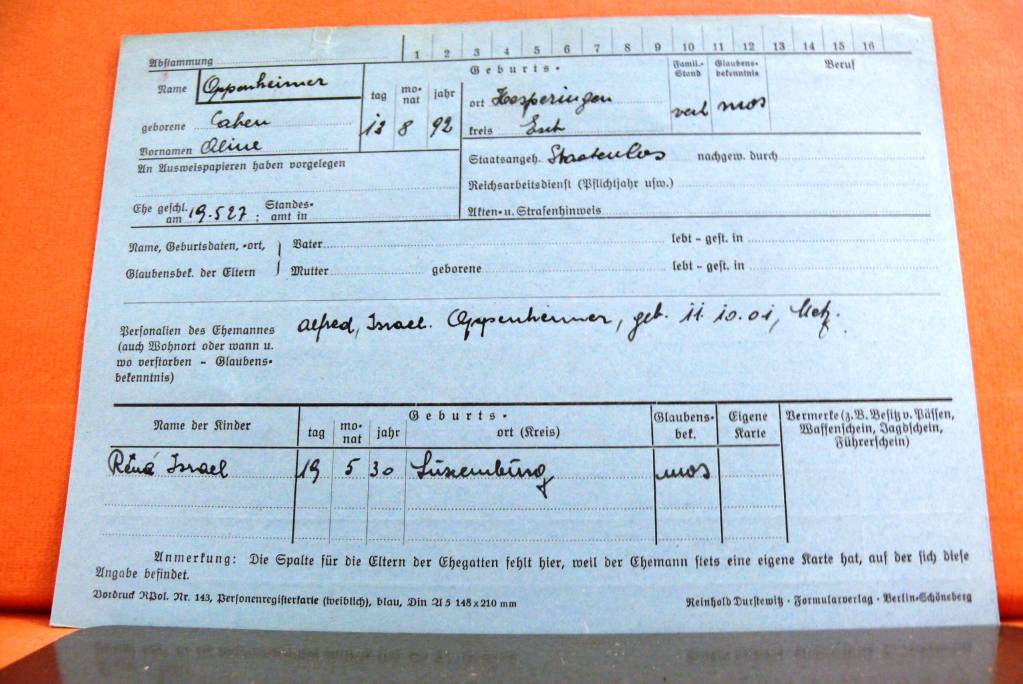 Abstammung 1 2 3 4 5 6 7 8 9 10 11 12 13 14 15 16
Name Oppenheimer tag mo-nat jahr Geburts- Famil.-Stand Glaubens-bekenntnis Beruf
ort Hesperingen
geborene Cahen 13 8 92 kreis Esch verh mos
Vornamen Aline
An Ausweispapieren haben vorgelegen Staatsangeh. Staatenlos nachgew. durch
Reichsarbeitsdienst (Pflichtjahr usw.)
Ehe geschl. am 19.5 27 ; Standes-amt in Akten- u. Strafenhinweis
Name, Geburtsdaten, -ort, Vater lebt - gest. in
Glaubensbek. der Eltern Mutter geborene lebt - gest. in
Personalien des Ehemannes Alfred, Israel. Oppenheimer, geb. 11. 10. 01, Metz.
(auch Wohnort oder wann u.
wo verstorben - Glaubens-
bekenntnis)
Name der Kinder tag mo-nat jahr Geburts-ort (Kreis) Glaubens-bek. Eigene Karte Vermerke (z.B. Besitz v. Pässen, Waffenschein, Jagdschein, Führerschein)
Réné Israel 19 5 30 Luxemburg mos
Anmerkung: Die Spalte für die Eltern der Ehegatten fehlt hier, weil der Ehemann stets eine eigene Karte hat, auf der sich diese
Angabe befindet.
Vordruck RPol. Nr. 143, Personenregisterkarte (weiblich), blau, Din A 5 148 x 210 mm Reinhold Durstewitz · Formularverlag · Berlin-Schöneberg